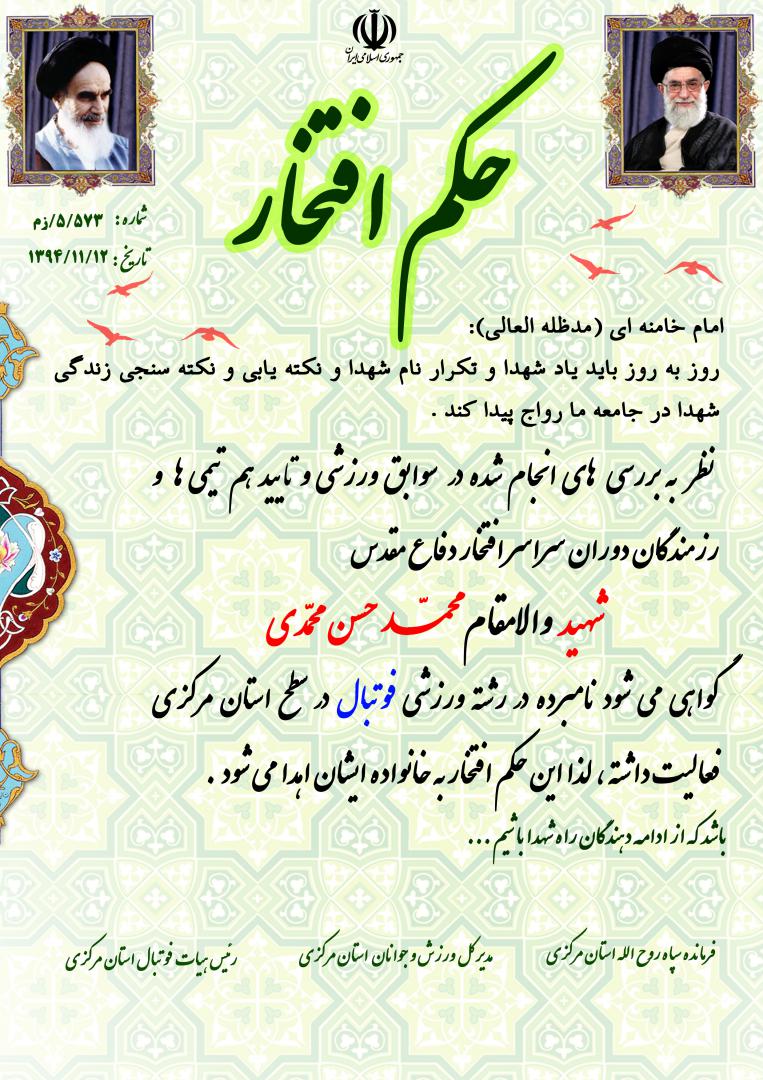 جمهوری اسلامی ایران
حکم افتخار
شماره: ۵/۵۷۳/زم
تاریخ: ۱۳۹۴/۱۱/۱۲
امام خامنه ای (مدظله العالی):
روز به روز باید یاد شهدا و تکرار نام شهدا و نکته یابی و نکته سنجی زندگی
شهدا در جامعه ما رواج پیدا کند .
نظر به بررسی های انجام شده در سوابق ورزشی و تایید هم تیمی ها و
رزمندگان دوران سراسر افتخار دفاع مقدس
شهید والامقام محمّد حسن محمّدی
گواهی می شود نامبرده در رشته ورزشی فوتبال در سطح استان مرکزی
فعالیت داشته ، لذا این حکم افتخار به خانواده ایشان اهدا می شود .
باشد که از ادامه دهندگان راه شهدا باشیم ...
فرمانده سپاه روح الله استان مرکزی
مدیر کل ورزش و جوانان استان مرکزی
رئیس هیات فوتبال استان مرکزی